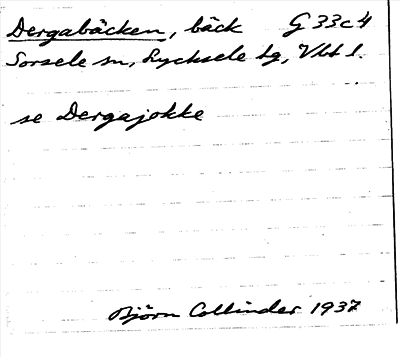 Dergabäcken, bäck G 33c4
Sorsele sn, Lycksele tg, Vbt l.
se Dergajokke
Björn Collinder 1937